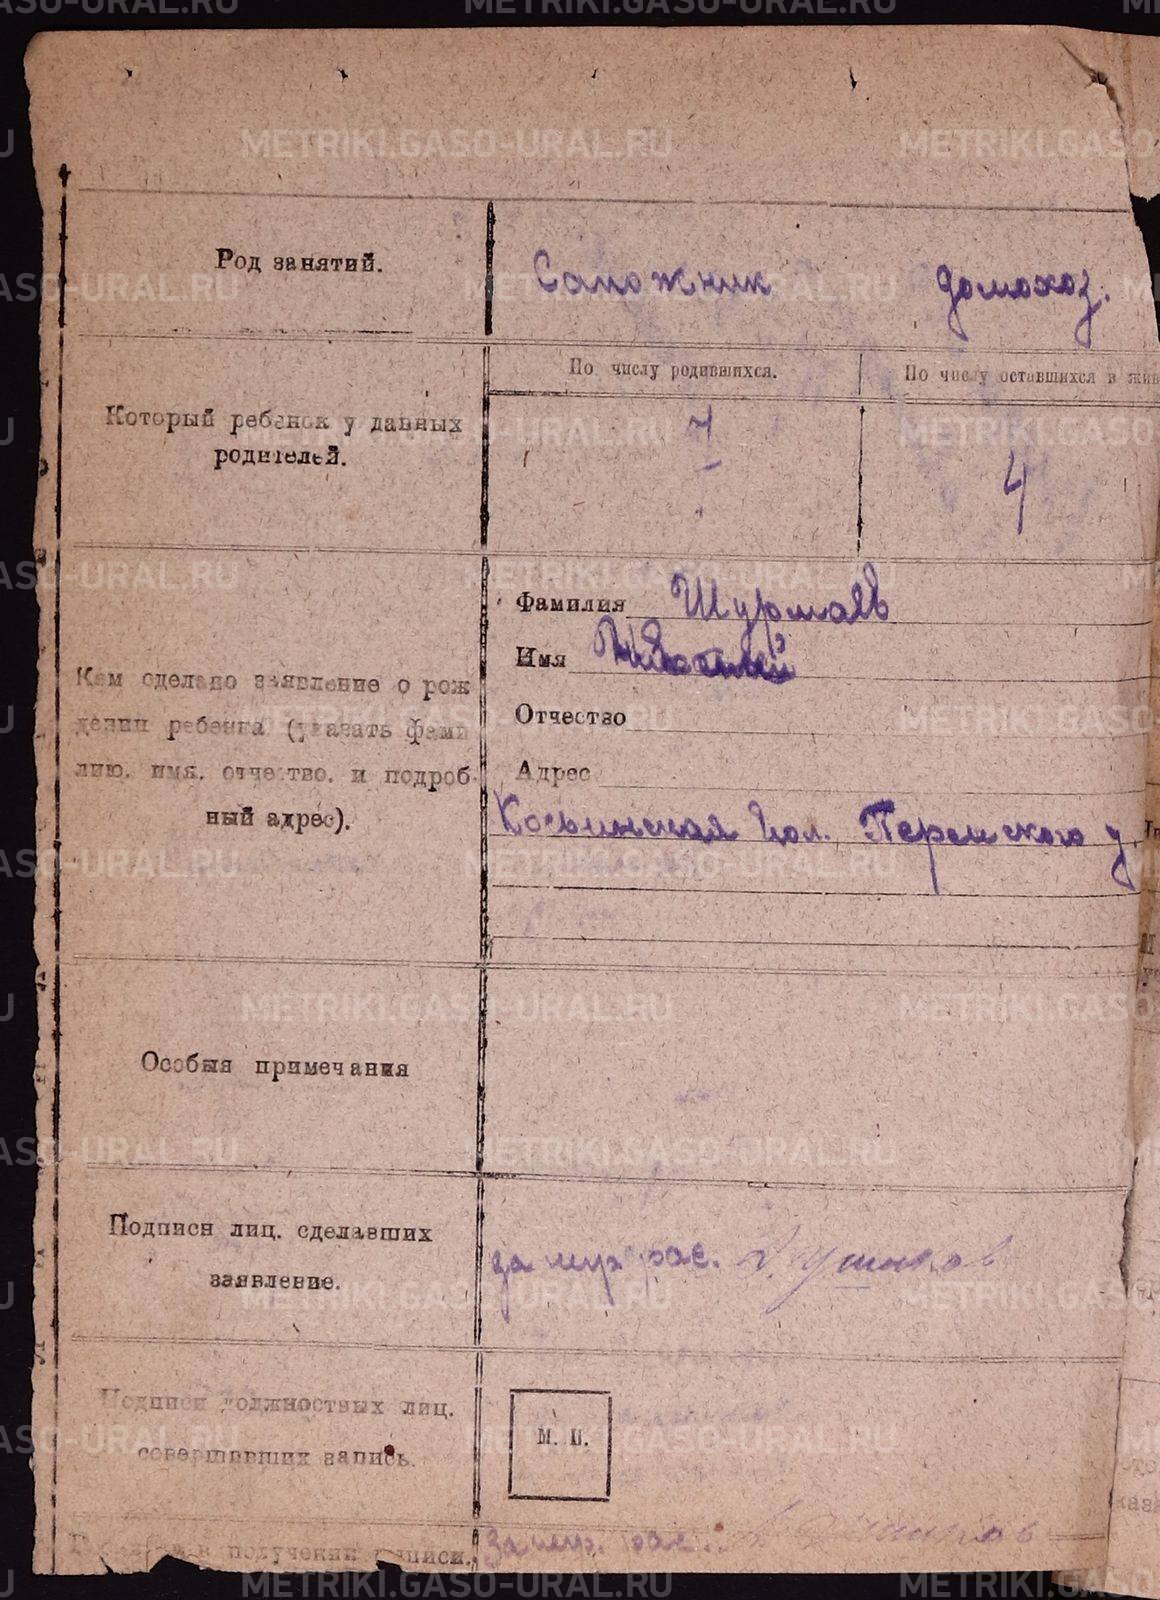 METRIKI.GASO-URAL.RU
Род занятий.
Сапожник домохоз.
По числу родившихся.
По числу оставшихся в жив
Который ребенок у данных
родителей.
7
4
Фамилия Шурмаев
Имя
Отчество
Адрес
Кем сделано заявление о рож
дении ребенка (указать фами
лию, имя, отчество, и подроб-
ный адрес).
Косьинская вол. Пермского у.
Особыя примечания
Подписи лиц, сделавших
заявление.
за негр рас. Ушаков
Подписи должностных лиц.
совершивших запись.
М. П.
в получении выписи.
За негр. рас.